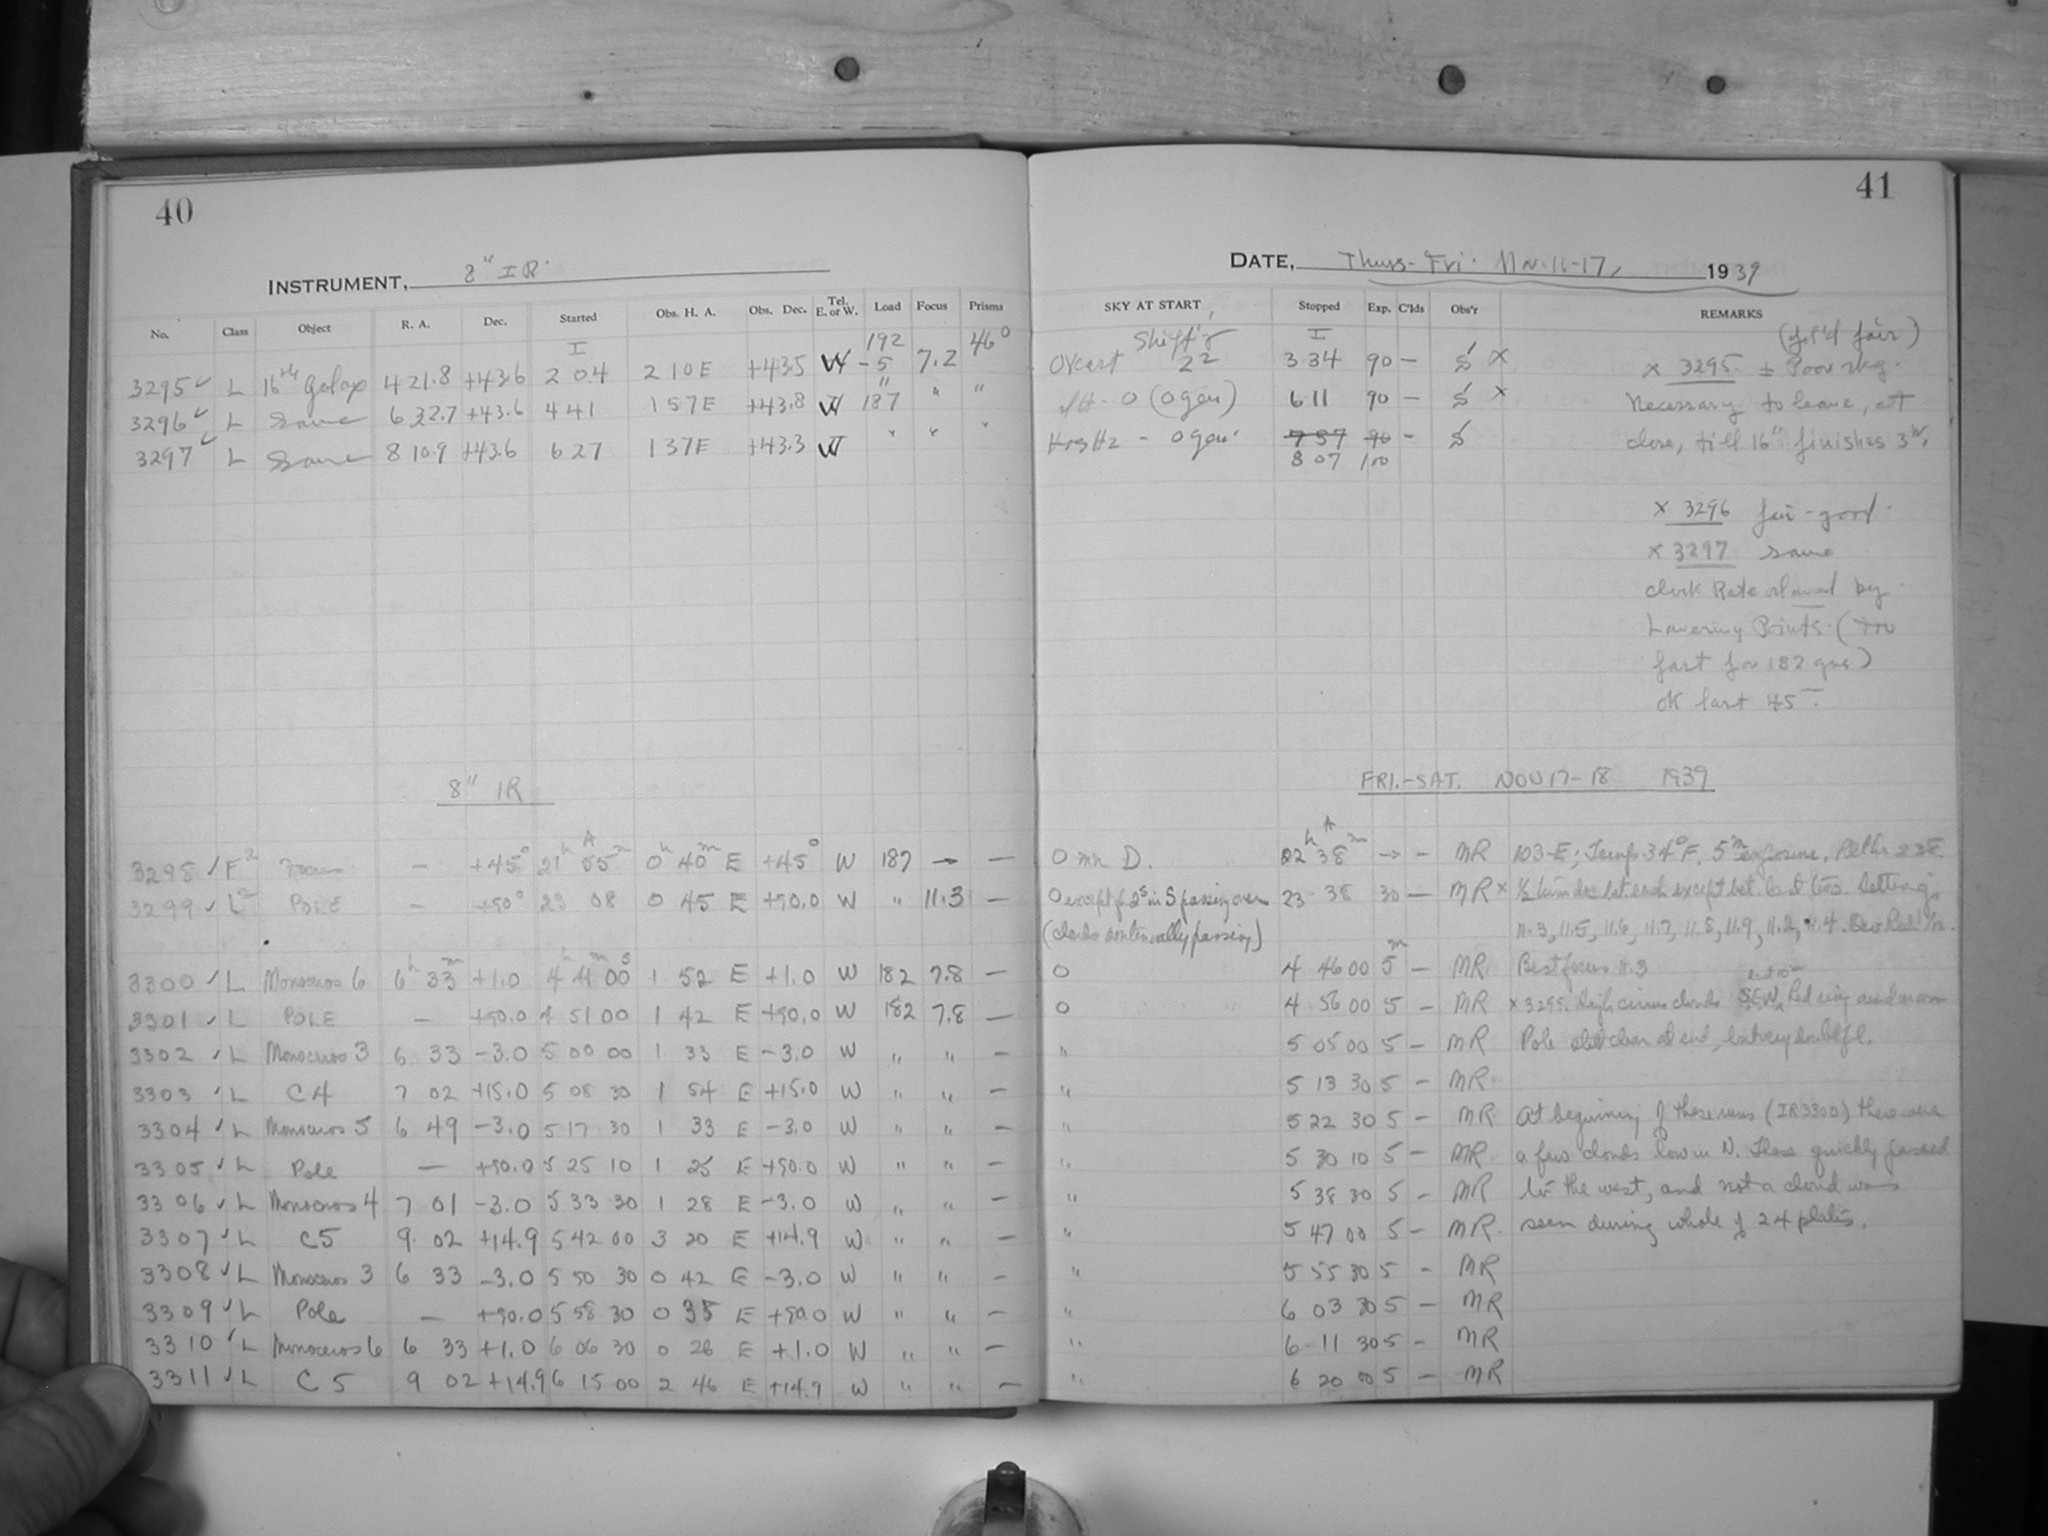 40
INSTRUMENT, 8" IR
No. Class Object R. A. Dec. Started Obs. H. A. Obs. Dec. Tel. E. or W. Load Focus Prisms
I 192 46°
3295 ✓ L 16th Galax 4 21.8 +43.6 2 04 2 10 E +43.5 W -5 7.2
3296 ✓ L Same 6 32.7 +43.6 4 41 1 57 E +43.8 W 187 " "
3297 ✓ L Same 8 10.9 +43.6 6 27 1 37 E +43.3 W " " "
8" IR
A
3298 ✓ F2 Focus — +45° 21h 55m 0h 40m E +45° W 187 — —
3299 ✓ L2 POLE — +90° 23 08 0 45 E +90.0 W " 11.3 —
3300 ✓ L Monoceros 6 6h 33m +1.0 4h 41m 00s 1 52 E +1.0 W 182 7.8 —
3301 ✓ L POLE — +90.0 4 51 00 1 42 E +90.0 W 182 7.8 —
3302 ✓ L Monoceros 3 6 33 -3.0 5 00 00 1 33 E -3.0 W " " —
3303 ✓ L C4 7 02 +15.0 5 08 30 1 54 E +15.0 W " " —
3304 ✓ L Monoceros 5 6 49 -3.0 5 17 30 1 33 E -3.0 W " " —
3305 ✓ L Pole — +90.0 5 25 10 1 25 E +90.0 W " " —
3306 ✓ L Monoceros 4 7 01 -3.0 5 33 30 1 28 E -3.0 W " " —
3307 ✓ L C5 9 02 +14.9 5 42 00 3 20 E +14.9 W " " —
3308 ✓ L Monoceros 3 6 33 -3.0 5 50 30 0 42 E -3.0 W " " —
3309 ✓ L Pole — +90.0 5 58 30 0 35 E +90.0 W " " —
3310 ✓ L Monoceros 6 6 33 +1.0 6 06 30 0 26 E +1.0 W " " —
3311 ✓ L C5 9 02 +14.9 6 15 00 2 46 E +14.9 W " " —
41
DATE, Thurs-Fri. Nov. 16-17, 1939
SKY AT START Stopped Exp. C'lds Obs'r REMARKS
I
Ovcast 22 3 34 90 — S x
0 (0 gen) 6 11 90 — S x
0 gen 7 57 90 — S
8 07 100
x 3295 ± Poor sky.
Necessary to leave, at
close, till 16" finishes
x 3296 fair-good
x 3297 same
Clock Rate slowed by
Lowering Points (too
fast for 182 gms)
OK last 45
FRI.-SAT. NOV 17-18 1939
A
22h 38m — — MR 103-E; Temp 34°F, 5m exposure,
0 except for in S passing over 23 38 30 — MR x
(clouds continually passing) 11.3, 11.5, 11.6, 11.7, 11.8, 11.9, 11.2, 11.4.
0 4 46 00 5m — MR Best focus 11.3
0 4 56 00 5 — MR x 3299. High cirrus clouds Red ring around moon
" 5 05 00 5 — MR Pole clear at end, but very doubtful.
" 5 13 30 5 — MR
" 5 22 30 5 — MR At beginning of these runs (IR3300) there were
" 5 30 10 5 — MR a few clouds low in N. These quickly passed
" 5 38 30 5 — MR to the west, and not a cloud was
" 5 47 00 5 — MR seen during whole of 24 plates.
" 5 55 30 5 — MR
" 6 03 30 5 — MR
" 6 11 30 5 — MR
" 6 20 00 5 — MR